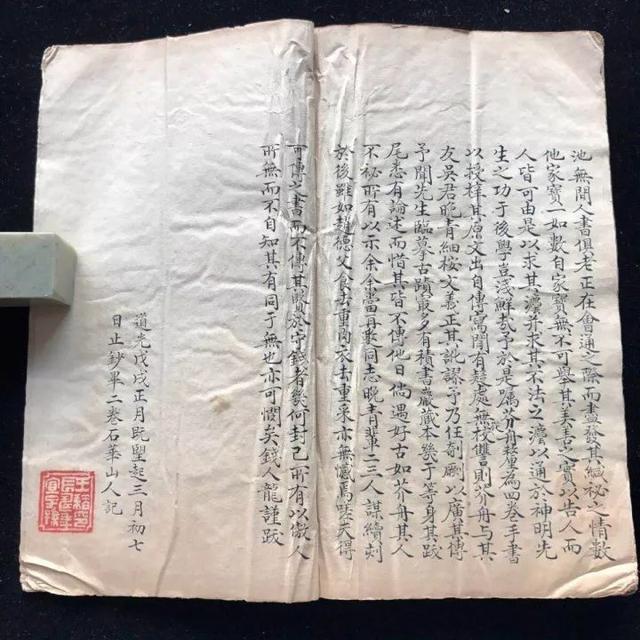 池無間人書俱老正在會通之際而盡發其緘秘之情數
他家寶一如數自家寶無不可舉其美言之寶以告人而
人皆可由是以求其濃并求其不法之濃以通於神明先
生之功于後學豈淺鮮哉予於是屬芥舟釐為四卷手書
以授梓其原文出自傳寫間有疑處無校讐則芥舟与其
友吳君晚青細桉文義正其訛謬予乃任剞劂以廣其傳
予聞先生臨摹古蹟最多有積書巖藏本幾于等身其跋
尾悉有論定而惜其皆不傳他日倘遇好古如芥舟其人
不秘所有以示余余當再家同志晚青輩二三人謀續刻
於後雖如趙德父食去重肉衣去重采亦無憾焉嗟夫得
可傳之書而不傳其賢於守錢者幾何封己所有以傲人
所無而不自知其有同于無也亦可憫矣錢人龍謹跋
道光戊戌正月既望起三月初七
日止鈔畢二卷石華山人記